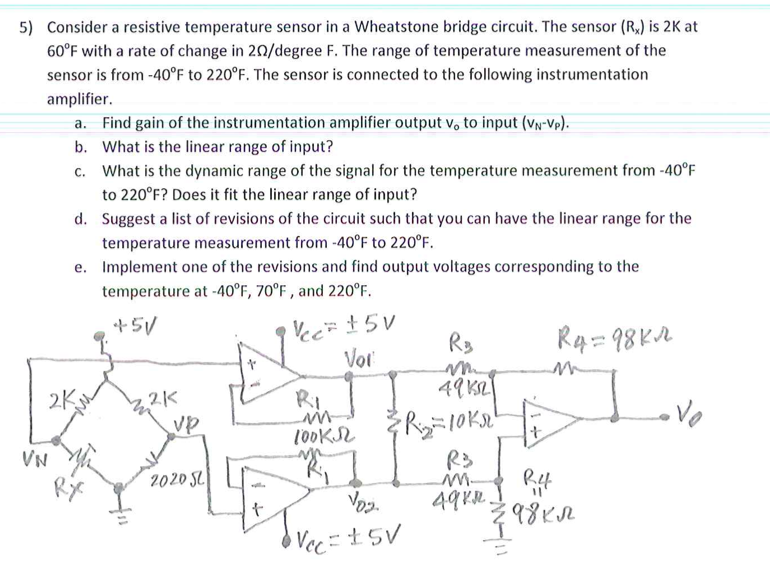 5) Consider a resistive temperature sensor in a Wheatstone bridge circuit. The sensor (Rₓ) is 2K at
60°F with a rate of change in 2Ω/degree F. The range of temperature measurement of the
sensor is from -40°F to 220°F. The sensor is connected to the following instrumentation
amplifier.
a. Find gain of the instrumentation amplifier output vₒ to input (vN-vP).
b. What is the linear range of input?
c. What is the dynamic range of the signal for the temperature measurement from -40°F
to 220°F? Does it fit the linear range of input?
d. Suggest a list of revisions of the circuit such that you can have the linear range for the
temperature measurement from -40°F to 220°F.
e. Implement one of the revisions and find output voltages corresponding to the
temperature at -40°F, 70°F , and 220°F.
+5V
Vcc = ±5V
R3
R4=98KΩ
Vo1
+
-
49KΩ
2K
2K
R1
VP
100KΩ
R2=10KΩ
-
+
Vo
VN
RX
2020Ω
R1
R3
-
+
Vo2
49KΩ
R4
=
98KΩ
Vcc = ±5V